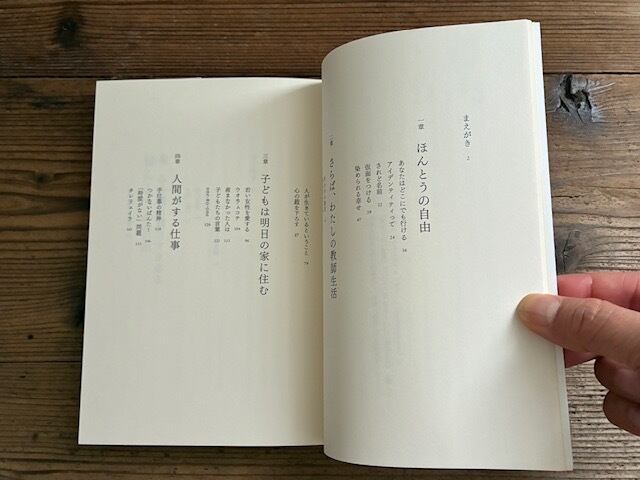 まえがき 2
一章 ほんとうの自由
あなたはどこにでも行ける 16
アイデンティティって 24
されど名前 32
仮面をつける 39
染められる幸せ 47
さらば、わたしの教師生活
人が生きているということ 79
心の殻をすろす 87
三章 子どもは明日の家に住む
若い女性を愛する 96
ウオラムコテ 104
産まなかった人は 113
子どもたちの言葉 122
四章 人間がする仕事
手仕事の精神 138
つかないぱんた! 146
「時間がない」問題
チレヴェイラ